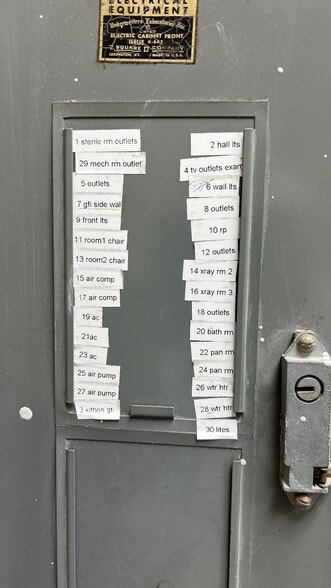 ELECTRICAL
EQUIPMENT
Underwriters' Laboratories Inc.
ELECTRIC CABINET FRONT
ISSUE
SQUARE D COMPANY
MADE IN U.S.A.
1 sterile rm outlets
29 mech rm outlet
5 outlets
7 gfi side wal
9 front lts
11 room1 chair
13 room2 chair
15 air comp
17 air comp
19 ac
21ac
23 ac
25 air pump
27 air pump
3 kithen gfi
2 hall lts
4 tv outlets exam
6 wall lts
8 outlets
10 rp
12 outlets
14 xray rm 2
16 xray rm 3
18 outlets
20 bath rm
22 pan rm
24 pan rm
26 wtr htr
28 wtr htr
30 lites